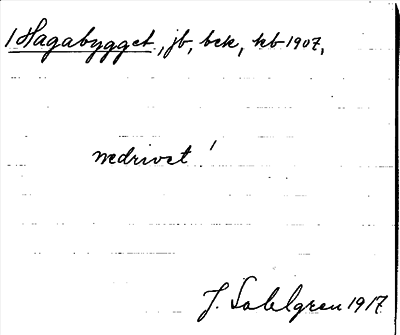 1 Hagabygget, jb, bek, kb 1907,
nedrivet!
J. Sahlgren 1917